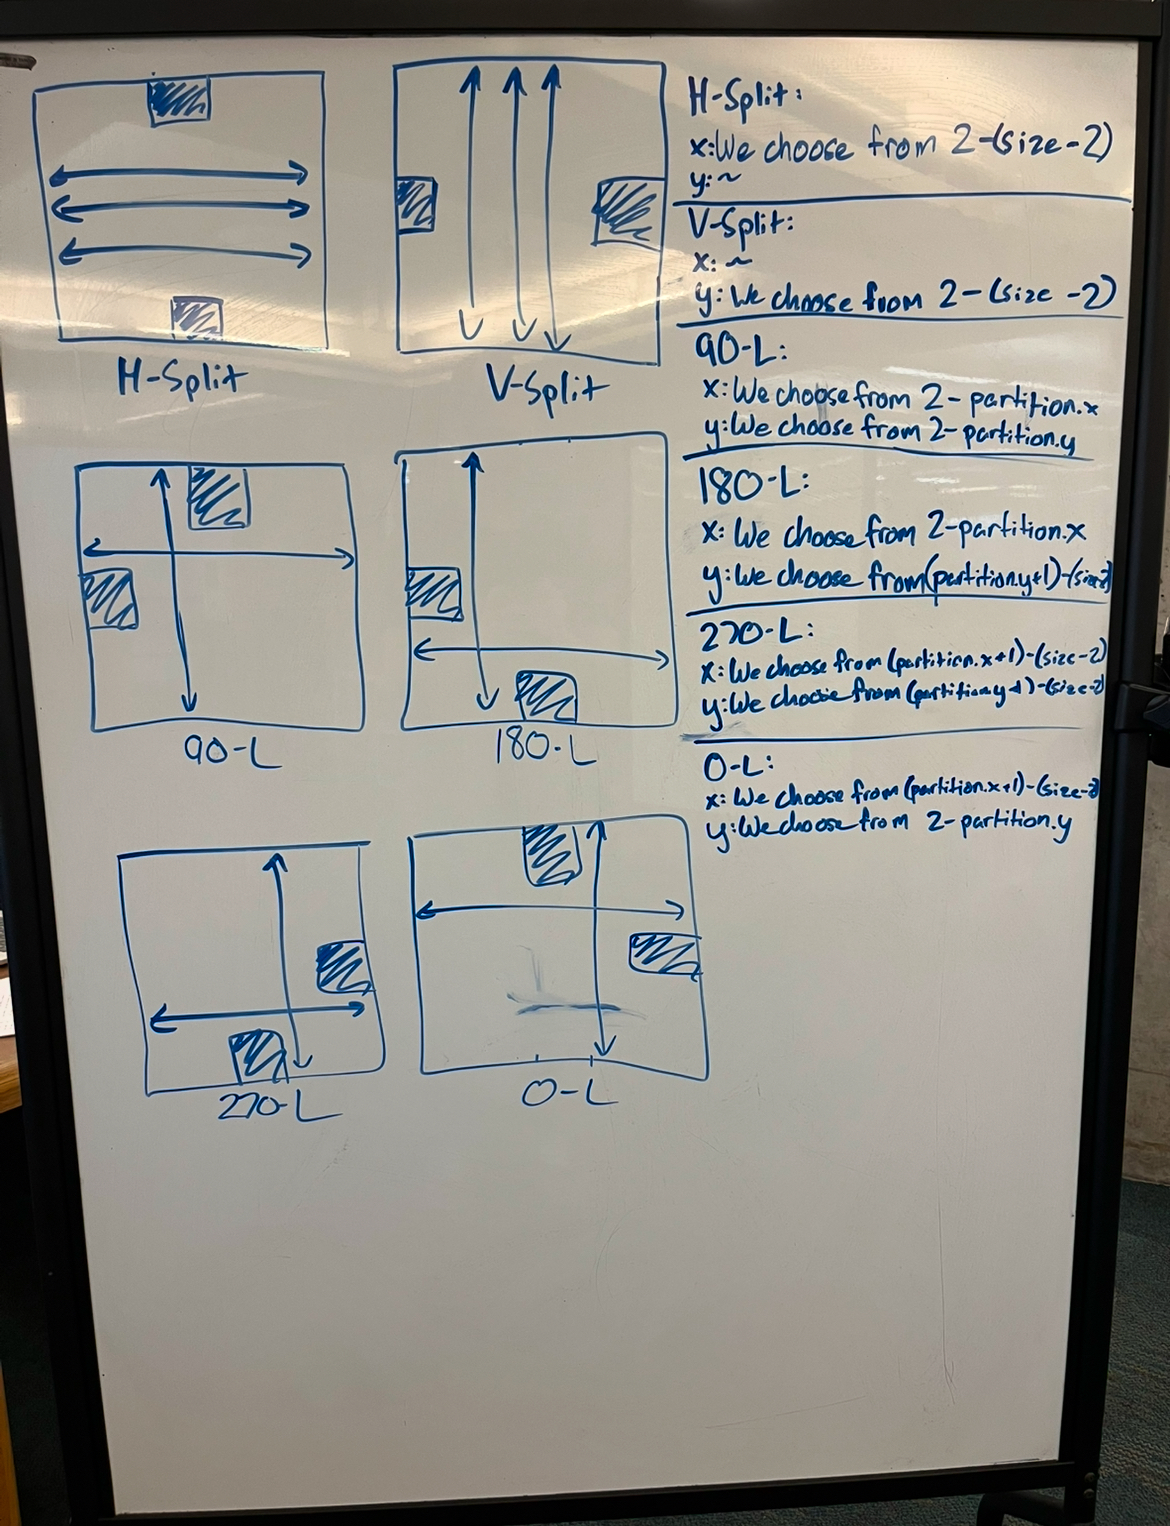 H-Split
V-Split
90-L
180-L
270-L
0-L
H-Split:
x: We choose from 2-(size-2)
y: ~
V-Split:
x: ~
y: We choose from 2-(size-2)
90-L:
x: We choose from 2-partition.x
y: We choose from 2-partition.y
180-L:
x: We choose from 2-partition.x
y: We choose from (partition.y+1)-(size-2)
270-L:
x: We choose from (partition.x+1)-(size-2)
y: We choose from (partition.y+1)-(size-2)
0-L:
x: We choose from (partition.x+1)-(size-2)
y: We choose from 2-partition.y